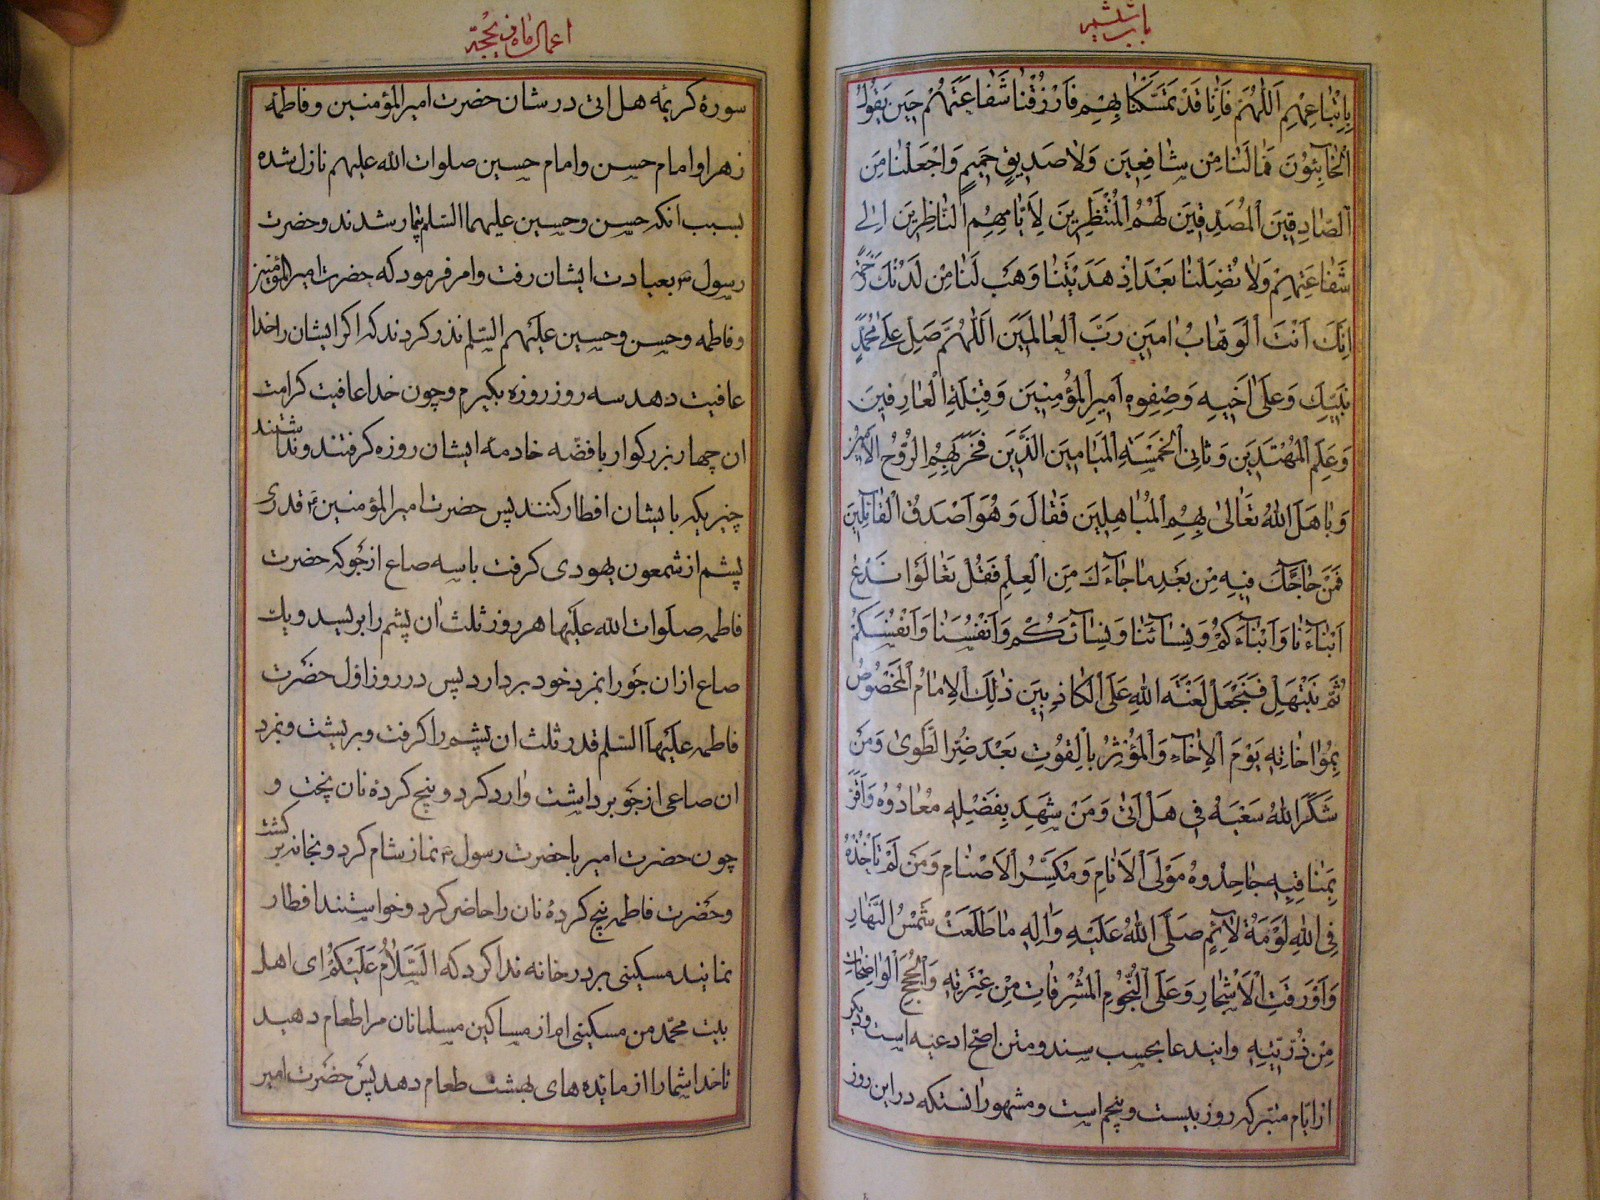 باب ششم
بِاِتِّبَاعِهِمْ اَللّٰهُمَّ فَاِنَّا قَدْ تَمَسَّكْنَا بِهِمْ فَارْزُقْنَا شَفَاعَتَهُمْ حِينَ يَقُولُ
اَلْخَائِبُونَ فَمَا لَنَا مِنْ شَافِعِينَ وَلَا صَدِيقٍ حَمِيمٍ وَاجْعَلْنَا مِنَ
الصَّادِقِينَ الْمُصَدِّقِينَ لَهُمُ الْمُنْتَظِرِينَ لِاَيَّامِهِمُ النَّاظِرِينَ اِلٰى
شَفَاعَتِهِمْ وَلَا تُضِلَّنَا بَعْدَ اِذْ هَدَيْتَنَا وَهَبْ لَنَا مِنْ لَدُنْكَ رَحْمَةً
اِنَّكَ اَنْتَ الْوَهَّابُ امِينَ رَبَّ الْعَالَمِينَ اَللّٰهُمَّ صَلِّ عَلٰى مُحَمَّدٍ
نَبِيِّكَ وَعَلٰى اَخِيهِ وَصِنْوِهِ اَمِيرِ الْمُؤْمِنِينَ وَقِبْلَةِ الْعَارِفِينَ
وَعَلَمِ الْمُهْتَدِينَ وَثَانِى الْخَمْسَةِ الْمَيَامِينَ الَّذِينَ فَخَرَ بِهِمُ الرُّوحُ الْاَمِينُ
وَبَاهَلَ اللهُ تَعَالٰى بِهِمُ الْمُبَاهِلِينَ فَقَالَ وَهُوَ اَصْدَقُ الْقَائِلِينَ
فَمَنْ حَاجَّكَ فِيهِ مِنْ بَعْدِ مَا جَاءَكَ مِنَ الْعِلْمِ فَقُلْ تَعَالَوْا نَدْعُ
اَبْنَاءَنَا وَاَبْنَاءَكُمْ وَنِسَاءَنَا وَنِسَاءَكُمْ وَاَنْفُسَنَا وَاَنْفُسَكُمْ
ثُمَّ نَبْتَهِلْ فَنَجْعَلْ لَعْنَةَ اللهِ عَلَى الْكَاذِبِينَ ذٰلِكَ الْاِمَامُ الْمَخْصُوصُ
بِمُوَاخَاتِهِ يَوْمَ الْاِخَاءِ وَالْمُؤْثِرُ بِالْقُوتِ بَعْدَ ضُرِّ الطَّوٰى وَمَنْ
شَكَرَ اللهُ سَعْيَهُ فِى هَلْ اَتٰى وَمَنْ شَهِدَ بِفَضْلِهِ مُعَادُوهُ وَاَقَرَّ
بِمَنَاقِبِهِ جَاحِدُوهُ مَوْلَى الْاَنَامِ وَمُكَسِّرُ الْاَصْنَامِ وَمَنْ لَمْ تَاْخُذْهُ
فِى اللهِ لَوْمَةُ لَائِمٍ صَلَّى اللهُ عَلَيْهِ وَاٰلِهِ مَا طَلَعَتْ شَمْسُ النَّهَارِ
وَاَوْرَقَتِ الْاَشْجَارُ وَعَلَى النُّجُومِ الْمُشْرِقَاتِ مِنْ عِتْرَتِهِ وَالْحُجَجِ الْوَاضِحَاتِ
مِنْ ذُرِّيَّتِهِ واین دعا بحسب سند و متن اصحّ ادعیه است و دیگر
از ایّام متبرکه روز بیست و پنجم است و مشهور آنستکه در این روز
اعمال ماه ذی حجّة
سورهٔ کریمه هل اتی در شان حضرت امیر المؤمنین و فاطمه
زهرا و امام حسن و امام حسین صلوات الله علیهم نازل شده
بسبب انکه حسن و حسین علیهما السّلم بیمار شدند و حضرت
رسول بعیادت ایشان رفت و امر فرمود که حضرت امیر المؤمنین
و فاطمه و حسن و حسین علیهم السّلم نذر کردند که اکر ایشان را خدا
عافیت دهد سه روز روزه بکیرم و چون خدا عافیت کرامت
ان چهار بزرکوار با فضّه خادمهٔ ایشان روزه کرفتند و نداشتند
چیزیکه بایشان افطار کنند پس حضرت امیر المؤمنین ع قدری
پشم از شمعون یهودی کرفت با سه صاع از جَو که حضرت
فاطمه صلوات الله علیها هر روز ثلث ان پشم را بریسد و یك
صاع از ان جَو را بمزد خود بردارد پس در روز اوّل حضرت
فاطمه علیها السّلم قدر ثلث ان پشم را کرفت و بریشت و بمزد
ان صاعی از جَو برداشت و ارد کرد و پنج کردهٔ نان پخت و
چون حضرت امیر با حضرت رسول نماز شام کرد و بخانه بر کشت
و حضرت فاطمه پنج کردهٔ نان را حاضر کرد و خواستند افطار
نمایند مسکینی بر در خانه ندا کرد که اَلسَّلَامُ عَلَيْكُمْ ای اهل
بیت محمّد من مسکینی ام از مساکین مسلمانان مرا طعام دهید
تا خدا شما را از مائده های بهشت طعام دهد پس حضرت امیر